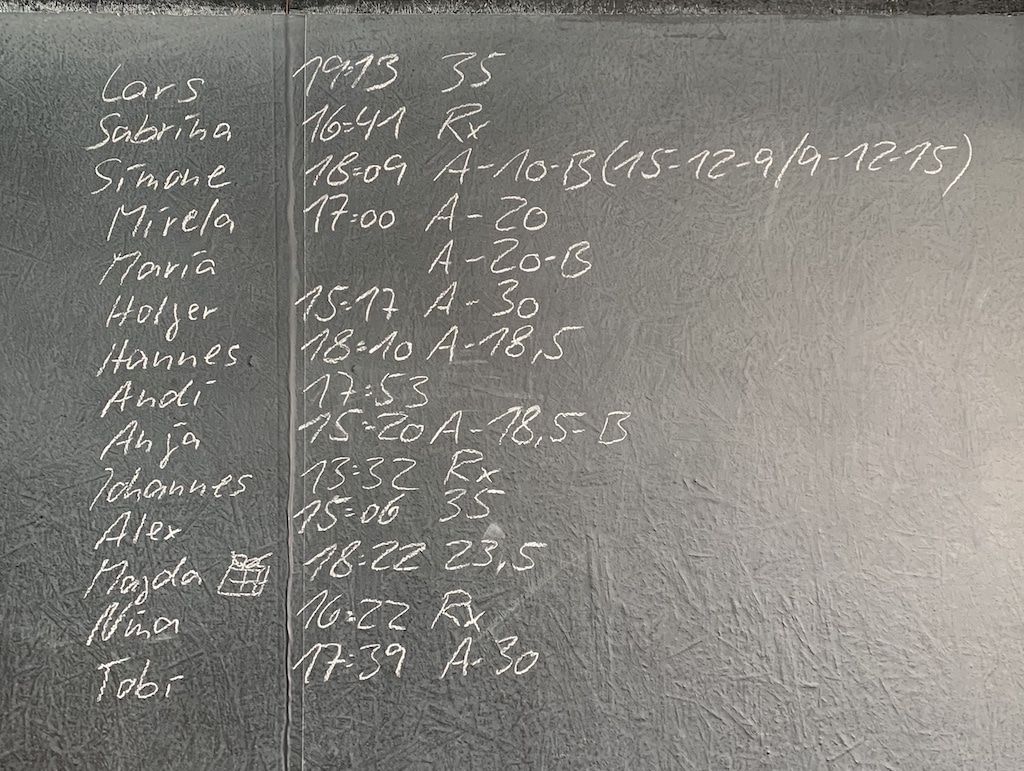 Lars 19:13 35
Sabrina 16:41 Rx
Simone 18:09 A-10-B (15-12-9/9-12-15)
Mirela 17:00 A-20
Maria A-20-B
Holger 15:17 A-30
Hannes 18:10 A-18,5
Andi 17:53
Anja 15:20 A-18,5-B
Johannes 13:32 Rx
Alex 15:06 35
Magda 18:22 23,5
Nina 16:22 Rx
Tobi 17:39 A-30